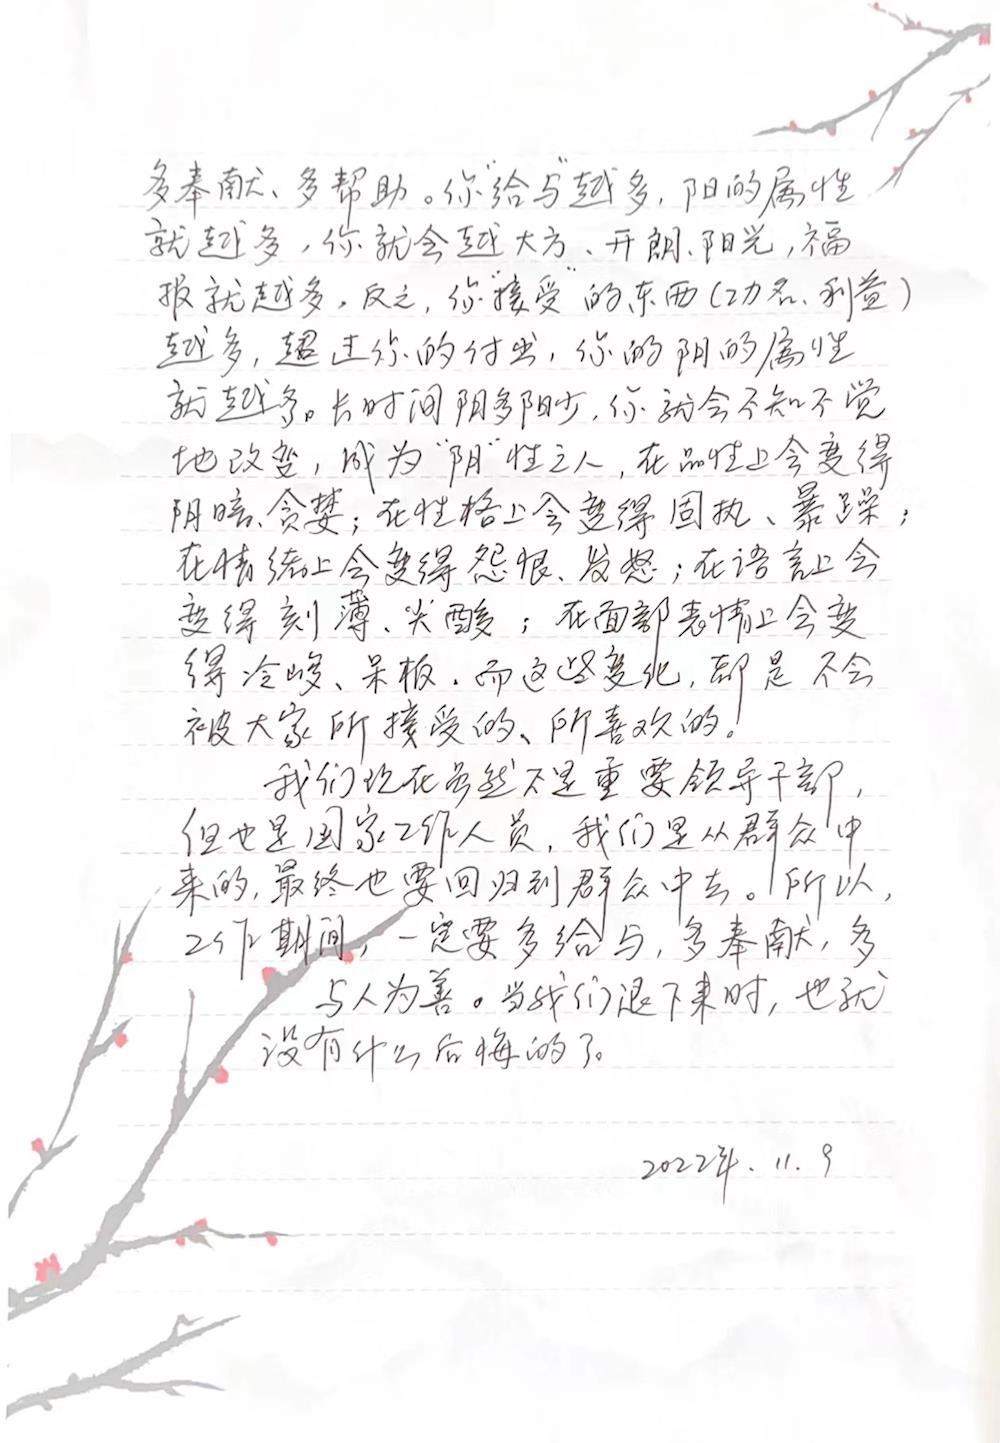 多奉献、多帮助。你"给与"越多，阳的属性
就越多，你就会越大方、开朗、阳光，福
报就越多。反之，你"接受"的东西（功名、利益）
越多，超过你的付出，你的阴的属性
就越多。长时间阴多阳少，你就会不知不觉
地改变，成为"阴"性之人，在品性上会变得
阴暗、贪婪；在性格上会变得固执、暴躁；
在情绪上会变得怨恨、发怒；在语言上会
变得刻薄、尖酸；在面部表情上会变
得冷峻、呆板。而这些变化，都是不会
被大家所接受的、所喜欢的。
我们现在虽然不是重要领导干部，
但也是国家工作人员，我们是从群众中
来的，最终也要回归到群众中去。所以，
工作期间，一定要多给与，多奉献，多
与人为善。当我们退下来时，也就
没有什么后悔的了。
2022年.11.9